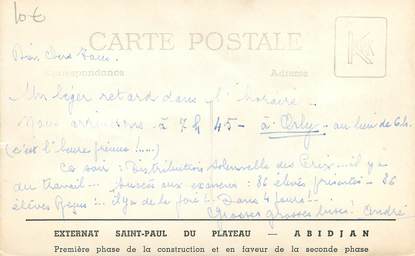 10€
CARTE POSTALE
Bien Chers Tous.
Correspondance Adresse
Un léger retard dans l'horaire..
Nous arriverons à 7h 45 - à Orly - au lieu de 6h.
(c'est l'heure prévue !.....)
Ce soir : Distribution Solennelle des Prix... il y a
du travail... succès aux examens : 86 élèves présentés - 86
élèves Reçus !... il y a de la joie !.. Dans 4 jours !..
Grosses grosses bises! André
EXTERNAT SAINT-PAUL DU PLATEAU — ABIDJAN
Première phase de la construction et en faveur de la seconde phase